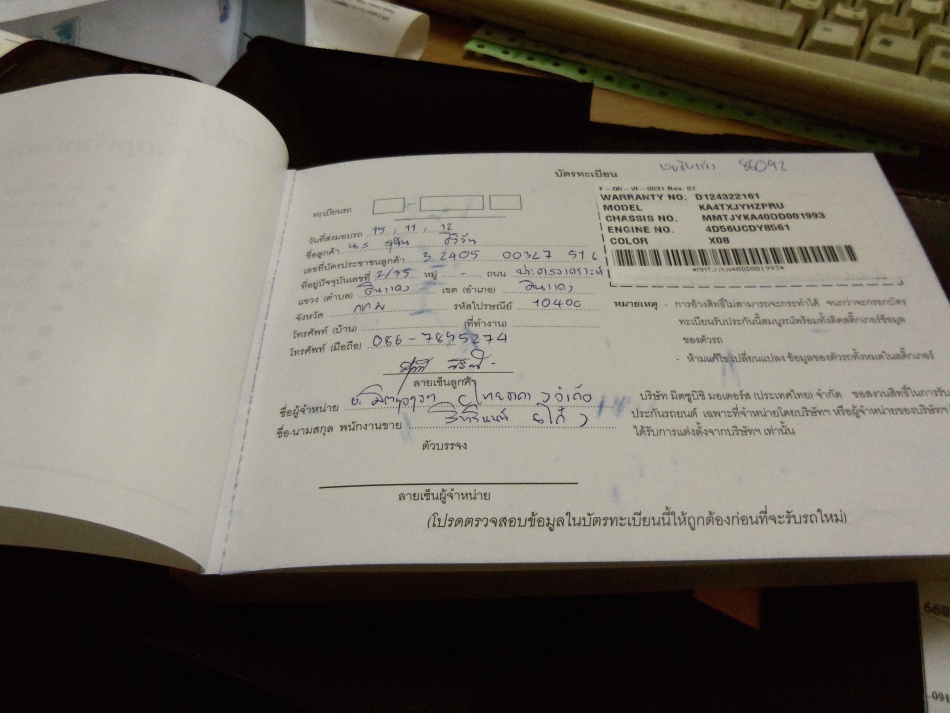 บัตรทะเบียน
86092
F-00-VI-0031 Rev. 02
WARRANTY NO. D124322161
MODEL KA4TXJYHZPRU
CHASSIS NO. MMTJYKA40DD001993
ENGINE NO. 4D56UCDY8561
COLOR X08
*MMTJYKA40DD001993*
ทะเบียนรถ
วันที่ส่งมอบรถ 15, 11, 12
ชื่อลูกค้า
เลขที่บัตรประชาชนลูกค้า 3 2405 00327 516
ที่อยู่ปัจจุบันเลขที่ 2/95 หมู่ - ถนน ประชาสงเคราะห์
แขวง (ตำบล) ดินแดง เขต (อำเภอ) ดินแดง
จังหวัด กทม รหัสไปรษณีย์ 10400
โทรศัพท์ (บ้าน) (ที่ทำงาน)
โทรศัพท์ (มือถือ) 086-7895274
ลายเซ็นลูกค้า
ชื่อผู้จำหน่าย จำกัด
ชื่อ-นามสกุล พนักงานขาย
ตัวบรรจง
ลายเซ็นผู้จำหน่าย
(โปรดตรวจสอบข้อมูลในบัตรทะเบียนนี้ให้ถูกต้องก่อนที่จะรับรถใหม่)
หมายเหตุ - การอ้างสิทธิ์ไม่สามารถจะกระทำได้ จนกว่าจะกรอกบัตร
ทะเบียนรับประกันนี้สมบูรณ์พร้อมทั้งติดสติ๊กเกอร์ข้อมูล
ของตัวรถ
- ห้ามแก้ไข เปลี่ยนแปลง ข้อมูลของตัวรถทั้งหมดในสติ๊กเกอร์
บริษัท มิตซูบิชิ มอเตอร์ส (ประเทศไทย) จำกัด ขอสงวนสิทธิ์ในการรับ
ประกันรถยนต์ เฉพาะที่จำหน่ายโดยบริษัทฯ หรือผู้จำหน่ายของบริษัทฯ
ได้รับการแต่งตั้งจากบริษัทฯ เท่านั้น
669
-091